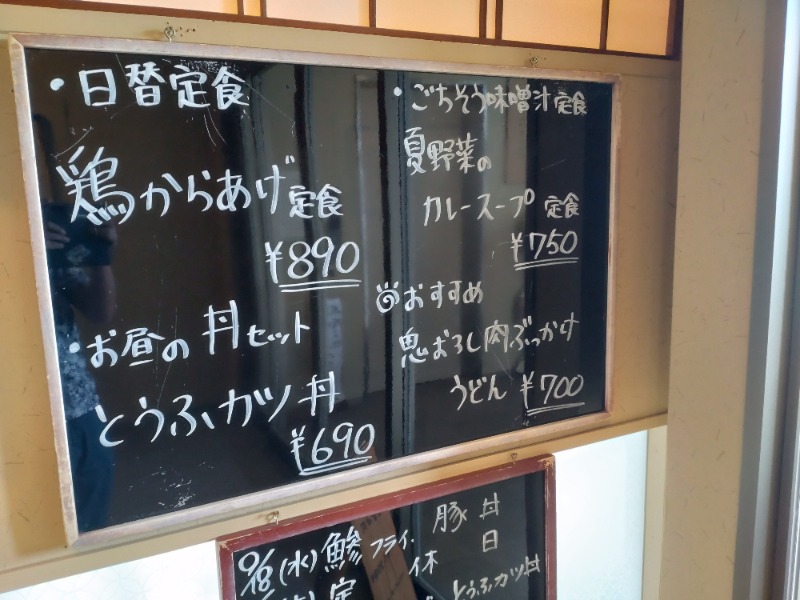 ・日替定食
鶏からあげ定食
¥890
・お昼の丼セット
とうふカツ丼
¥690
・ごちそう味噌汁定食
夏野菜の
カレースープ 定食
¥750
おすすめ
鬼おろし肉ぶっかけ
うどん ¥700
(水) 鯵フライ
豚丼
日
定
とうふカツ丼